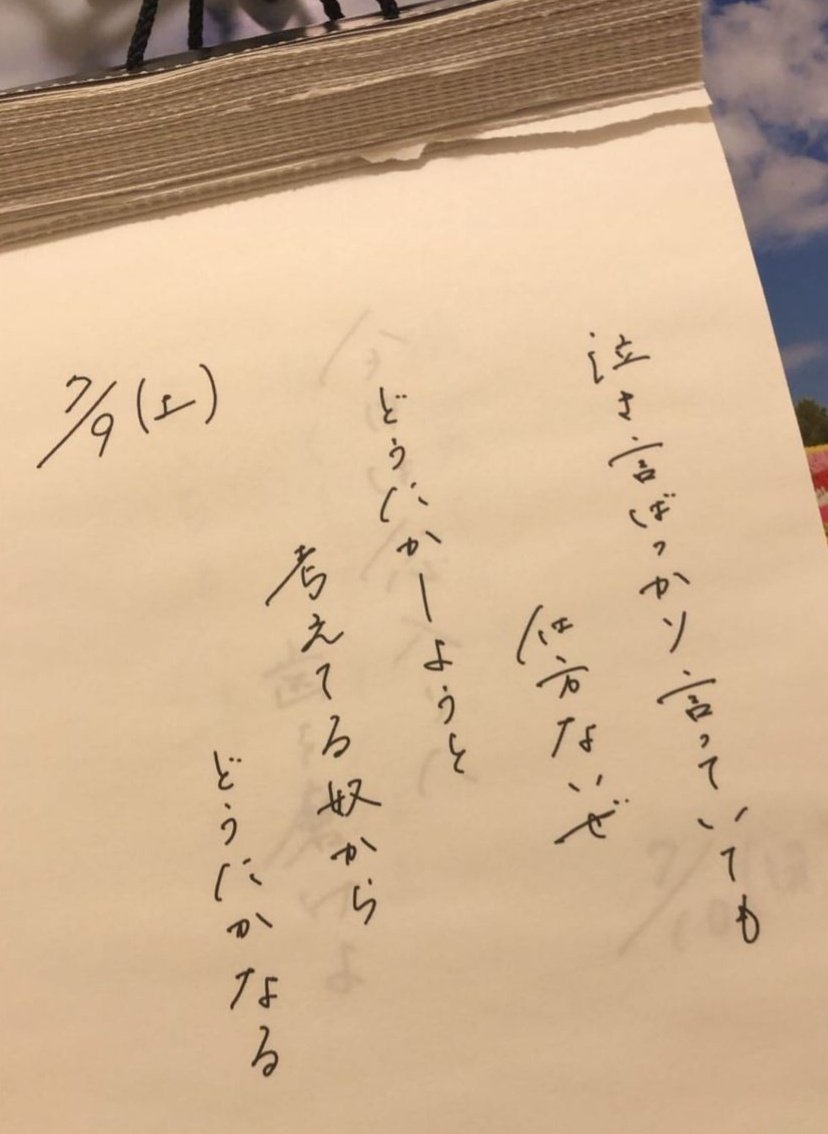 泣き言ばっかり言っていても
仕方ないぜ
どうにかしようと
考えてる奴から
どうにかなる
7/9(土)